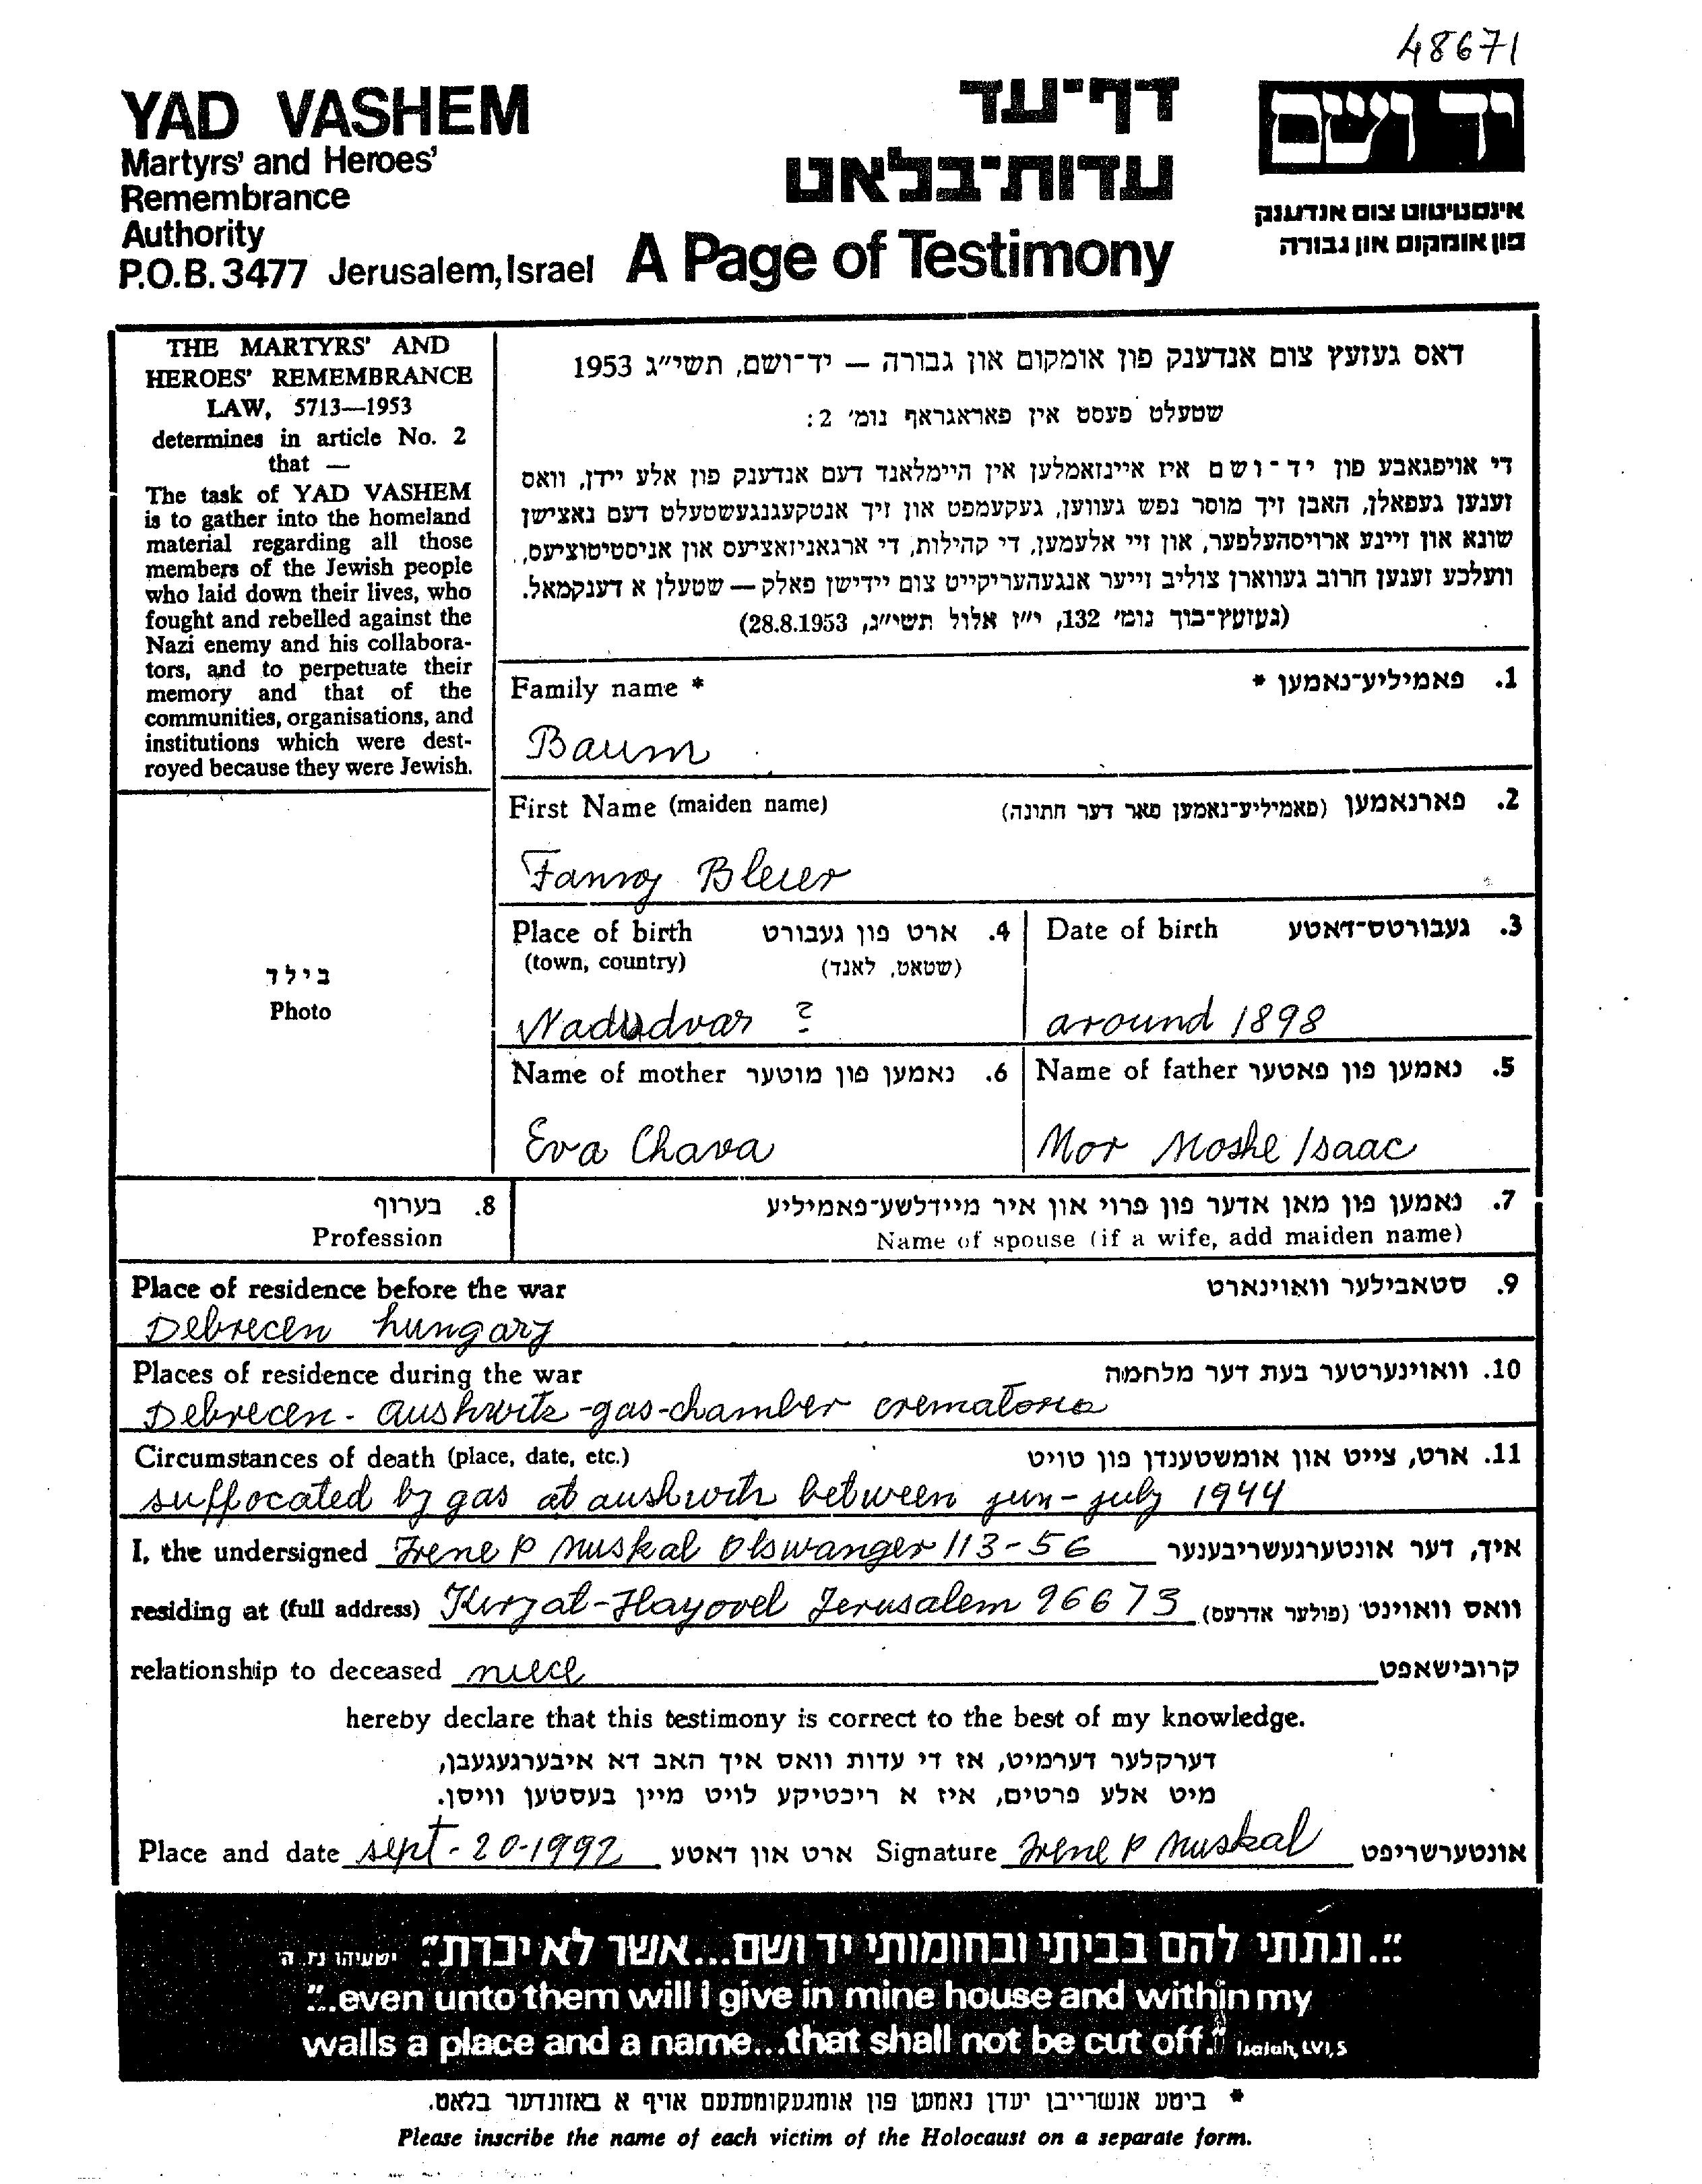 48671
YAD VASHEM
Martyrs' and Heroes'
Remembrance
Authority
P.O.B. 3477 Jerusalem, Israel
דף־עד
עדות־בלאט
A Page of Testimony
יד ושם
אינסטיטוט צום אנדענק
פון אומקום און גבורה
THE MARTYRS' AND
HEROES' REMEMBRANCE
LAW, 5713—1953
determines in article No. 2
that —
The task of YAD VASHEM
is to gather into the homeland
material regarding all those
members of the Jewish people
who laid down their lives, who
fought and rebelled against the
Nazi enemy and his collabora-
tors, and to perpetuate their
memory and that of the
communities, organisations, and
institutions which were dest-
royed because they were Jewish.
דאס געזעץ צום אנדענק פון אומקום און גבורה — יד־ושם, תשי״ג 1953
שטעלט פעסט אין פאראגראף נומ' 2:
די אויפגאבע פון יד־ושם איז איינזאמלען אין היימלאנד דעם אנדענק פון אלע יידן, וואס
זענען געפאלן, האבן זיך מוסר נפש געווען, געקעמפט און זיך אנטקעגנגעשטעלט דעם נאצישן
שונא און זיינע ארויסהעלפער, און זיי אלעמען, די קהילות, די ארגאניזאציעס און אניסטיטוציעס,
וועלכע זענען חרוב געווארן צוליב זייער אנגעהעריקייט צום יידישן פאלק — שטעלן א דענקמאל.
(געזעץ־בוך נומ' 132, י״ז אלול תשי״ג, 28.8.1953)
Family name * 1. פאמיליע־נאמען *
Baum
First Name (maiden name) 2. פארנאמען (פאמיליע־נאמען פאר דער חתונה)
Fanny Bleier
Place of birth 4. ארט פון געבורט
(town, country) (שטאט, לאנד)
Nadudvar ?
Date of birth 3. געבורטס־דאטע
around 1898
בילד
Photo
Name of mother 6. נאמען פון מוטער
Eva Chava
Name of father 5. נאמען פון פאטער
Mor Moshe Isaac
8. בערוף
Profession
7. נאמען פון מאן אדער פון פרוי און איר מיידלשע־פאמיליע
Name of spouse (if a wife, add maiden name)
Place of residence before the war 9. סטאבילער וואוינארט
Debrecen hungary
Places of residence during the war 10. וואוינערטער בעת דער מלחמה
Debrecen - aushwitz - gas-chamber crematoria
Circumstances of death (place, date, etc.) 11. ארט, צייט און אומשטענדן פון טויט
suffocated by gas at aushwitz between jun - july 1944
I, the undersigned Irene P Muskal Olswanger 113-56 איך, דער אונטערגעשריבענער
residing at (full address) Kiryat-Hayovel Jerusalem 96673 וואס וואוינט (פולער אדרעס)
relationship to deceased niece קרובישאפט
hereby declare that this testimony is correct to the best of my knowledge.
דערקלער דערמיט, אז די עדות וואס איך האב דא איבערגעגעבן,
מיט אלע פרטים, איז א ריכטיקע לויט מיין בעסטען וויסן.
Place and date sept - 20-1992 ארט און דאטע Signature Irene P Muskal אונטערשריפט
״..ונתתי להם בביתי ובחומותי יד ושם...אשר לא יכרת״ ישעיהו נז ה'
"..even unto them will I give in mine house and within my
walls a place and a name...that shall not be cut off." Isaiah, LVI, 5
* ביטע אנשרייבן יעדן נאמען פון אומגעקומענעם אויף א באזונדער בלאט.
Please inscribe the name of each victim of the Holocaust on a separate form.